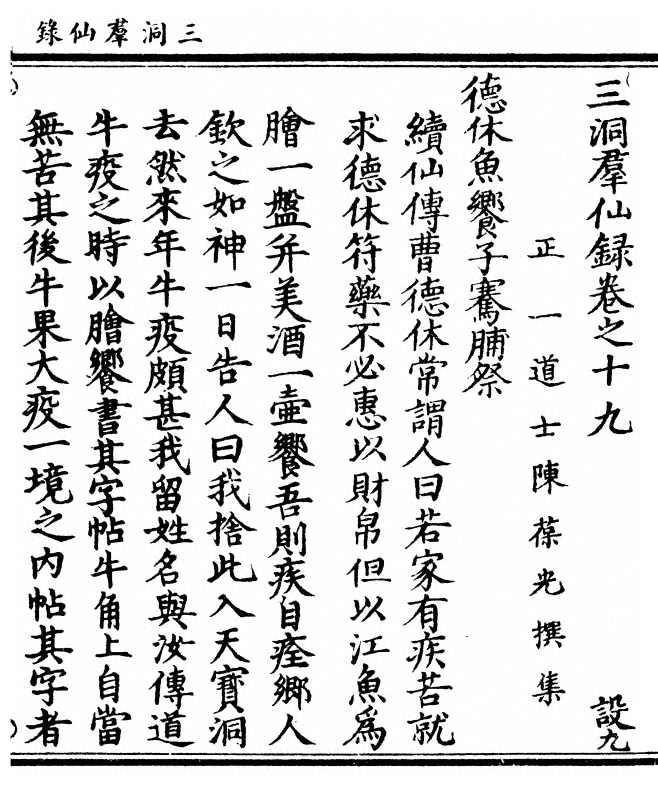 三洞羣仙錄
三洞羣仙録卷之十九
設九
正一道士陳葆光撰集
德休魚饗子騫脯祭
續仙傳曹德休常謂人曰若家有疾苦就
求德休符藥不必惠以財帛但以江魚爲
膾一盤并美酒一壷饗吾則疾自痊鄉人
欽之如神一日告人曰我捨此入天寶洞
去然來年牛疫頗甚我留姓名與汝傳道
牛疫之時以膾饗書其字帖牛角上自當
無苦其後牛果大疫一境之内帖其字者